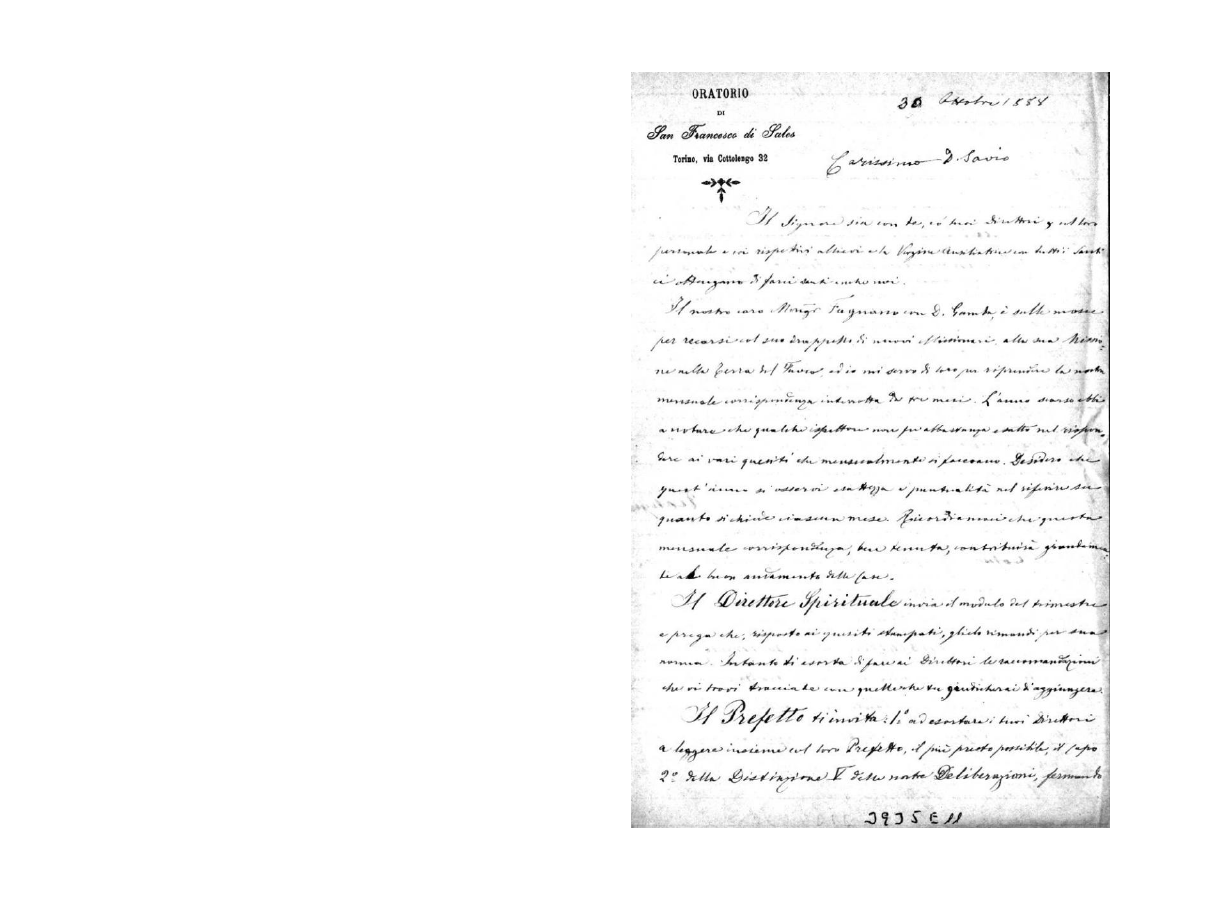 ORATORIO
DI
San Francesco di Sales
Torino, via Cottolengo 32
30 Ottobre 1888
Carissimo D. Savio
Il Signore sia con te, co' tuoi Direttori col loro
personale e coi rispettivi allievi e la Vergine Ausiliatrice con tutti i Santi
ci ottengano di farci santi anche noi.
Il nostro caro Monsr Fagnano con D. è sulle mosse
per recarsi col suo drappello di nuovi Missionari, alla sua Missio-
ne nella Terra del Fuoco, ed io mi servo di loro per riprendere la nostra
mensuale corrispondenza interrotta da tre mesi. L'anno scorso ebbi
a notare che qualche ispettore non fu abbastanza esatto nel rispon-
dere ai vari quesiti che mensualmente si facevano. Desidero che
quest'anno si osservi esattezza e puntualità nel riferire su
quanto si chiede ciascun mese. Ricordiamoci che questa
mensuale corrispondenza, ben tenuta, contribuirà grandemen-
te al buon andamento delle Case.
Il Direttore Spirituale invia il modulo del trimestre
e prega che, risposto ai quesiti stampati, glielo rimandi per sua
norma. Intanto ti esorta di fare ai Direttori le raccomandazioni
che vi trovi tracciate con quelle che tu giudicherai d'aggiungere.
Il Prefetto ti invita: 1º ad esortare i tuoi Direttori
a leggere insieme col loro Prefetto, il più presto possibile, il Capo
2º della Distinzione V delle nostre Deliberazioni, fermando
3935 E 11